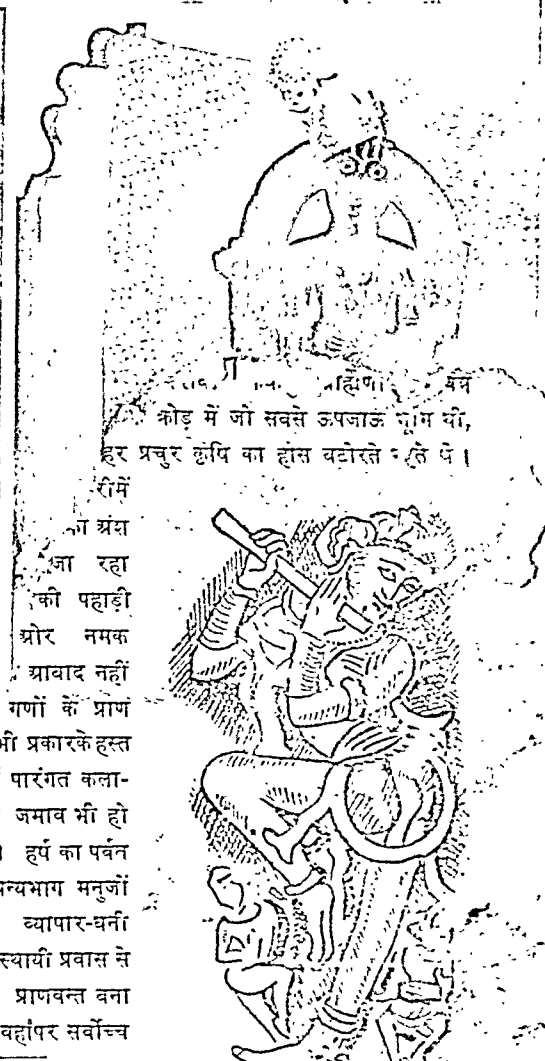 क्रोड़ में जो सबसे ऊपजाऊ भूमि थी,
हर प्रचुर कृषि का हांस बटोरते रहते थे ।
रीमें
का अंश
जा रहा
की पहाड़ी
ओर नमक
आबाद नहीं
गणों के प्राण
भी प्रकारके हस्त
पारंगत कला-
जमाव भी हो
। हर्ष का पर्वत
न्यभाग मनुजों
व्यापार-धनी
स्थायी प्रवास से
प्राणवन्त बना
वहांपर सर्वोच्च